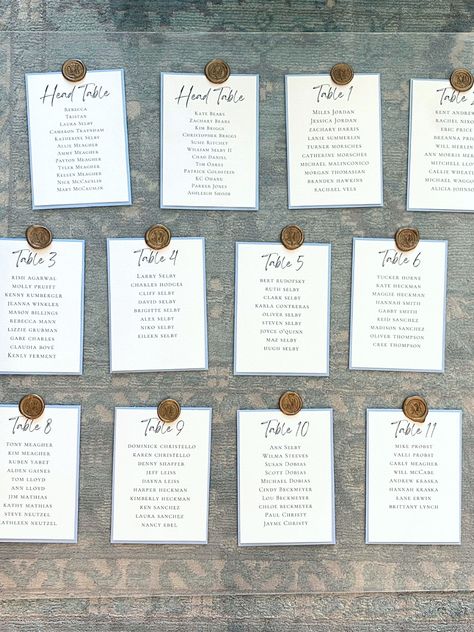 Head Table
Rebecca
Tristan
Laura Selby
Cameron Trayndam
Katherine Selby
Allie Meagher
Ammy Meagher
Payton Meagher
Tyler Meagher
Kelsey Meagher
Nick McCaulin
Mary McCaulin
Head Table
Kate Beabs
Zachary Beabs
Kim Briggs
Christopher Briggs
Susie Ritchey
William Seaby II
Chad Daniel
Tim Oakes
Patrick Goldstein
KC O'Hara
Parker Jones
Ashleigh Shoor
Table 1
Miles Jordan
Jessica Jordan
Zachary Harris
Lanie Summerlin
Turner Morsches
Catherine Morsches
Michael Malinconico
Morgan Thomasian
Branden Hawkins
Rachael Vels
Kent Andre
Rachel Nixo
Eric Price
Breanna Pri
Will Merlin
Ann Morris Mer
Mitchell Llo
Callie Wheat
Will Waggo
Alicia Johns
Table 3
Rishi Agarwal
Molly Pruitt
Kenny Rumberger
Jeanna Winkler
Mason Billings
Rebecca Mann
Lizzie Grubman
Gabe Charles
Claudia Bové
Kenly Ferment
Table 4
Larry Selby
Charles Hodges
Cliff Selby
David Selby
Brigitte Selby
Alex Selby
Niko Selby
Eileen Selby
Table 5
Bert Rudofsky
Ruth Selby
Clark Selby
Karla Contreras
Oliver Selby
Steven Selby
Joyce O'Quinn
Maz Selby
Hugh Selby
Table 6
Tucker Horne
Kate Heckman
Maggie Heckman
Hannah Smith
Gabby Smith
Reid Sanchez
Madison Sanchez
Oliver Thompson
Cree Thompson
Table 8
Tony Meagher
Kim Meagher
Ruben Yabet
Alden Gaines
Tom Lloyd
Ann Lloyd
Jim Mathias
Kathy Mathias
Steve Neutzel
Kathleen Neutzel
Table 9
Dominick Christello
Karen Christello
Denny Shaffer
Jeff Leiss
Dayna Leiss
Harper Heckman
Kimberly Heckman
Ken Sanchez
Laura Sanchez
Nancy Ebel
Table 10
Ann Selby
Wilma Steeves
Susan Dobias
Scott Dobias
Michael Dobias
Cindy Beckmeyer
Lou Beckmeyer
Chloe Beckmeyer
Paul Christy
Jayme Christy
Table 11
Mike Probst
Valli Probst
Carly Meagher
Will McCabe
Andrew Kraska
Hannah Kraska
Lane Erwin
Brittany Lynch